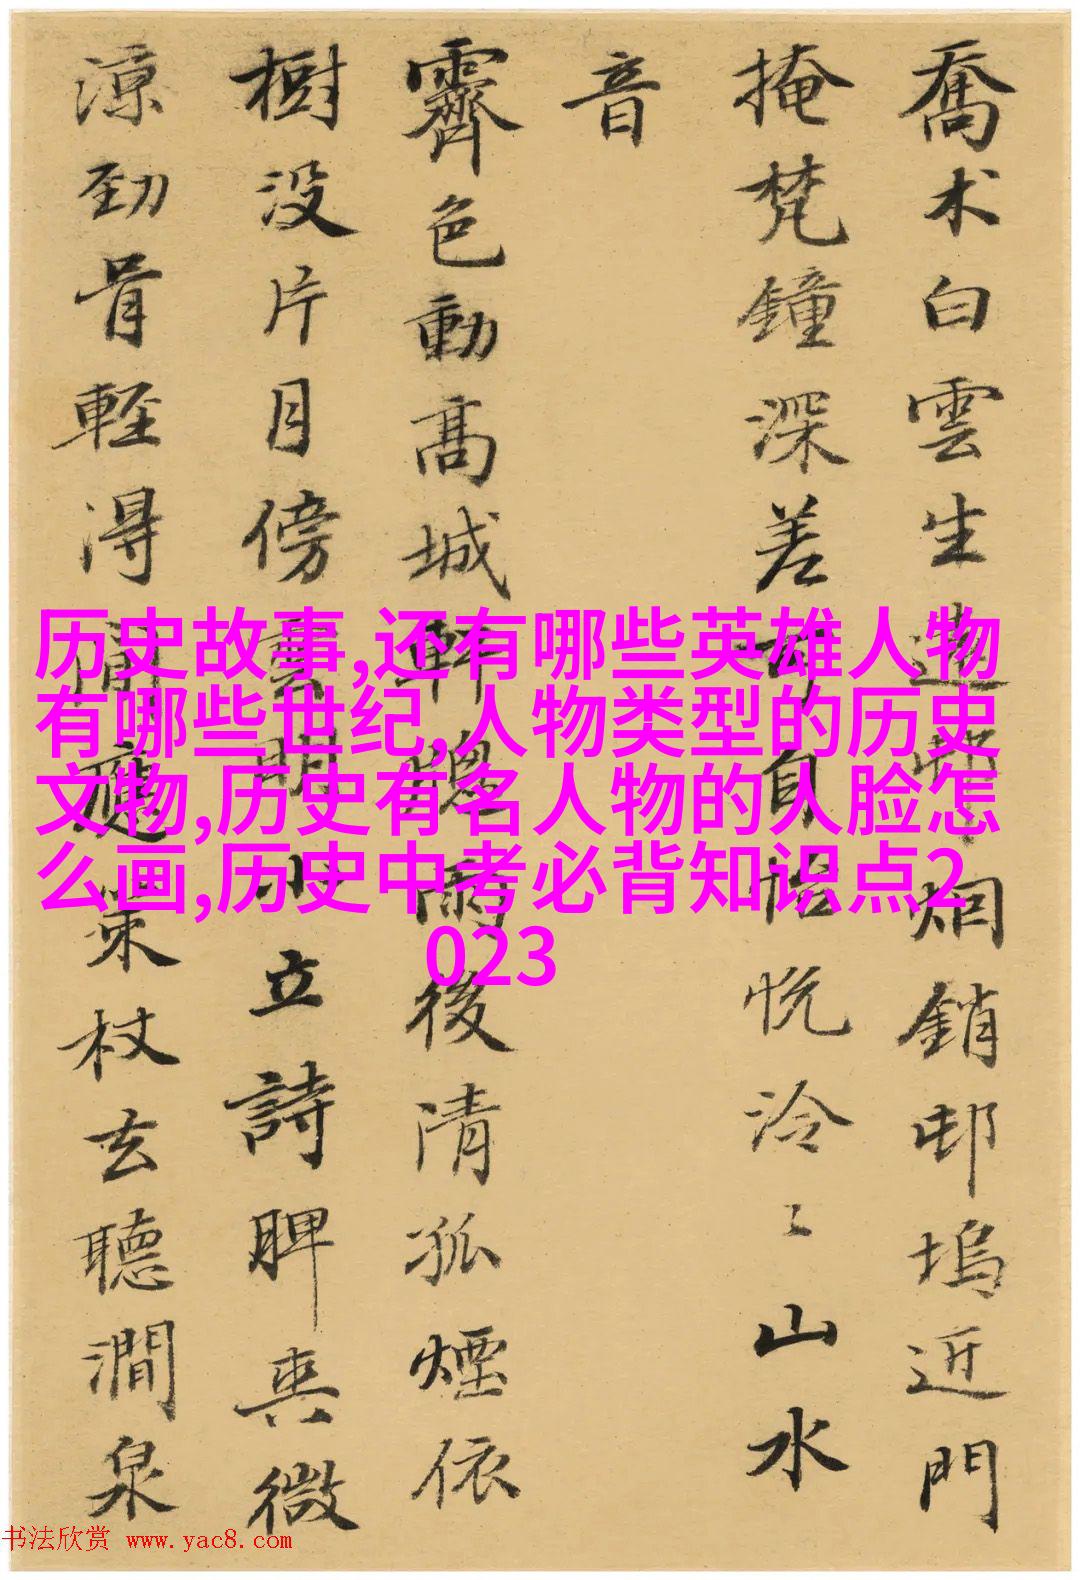 喬木白雲生遠烟銷邨塢近門
掩梵鐘深差可自怡悦泠〻山水
音
霽色動高城軒牕雨後清孤煙依
樹没片月傍雲明小立詩脾爽微
涼勁骨輕得閒策杖去聽澗泉
历史故事,还有哪些英雄人物
有哪些世纪,人物类型的历史
文物,历史有名人物的人脸怎
么画,历史中考必背知识点2
023
书法欣赏 www.yac8.com